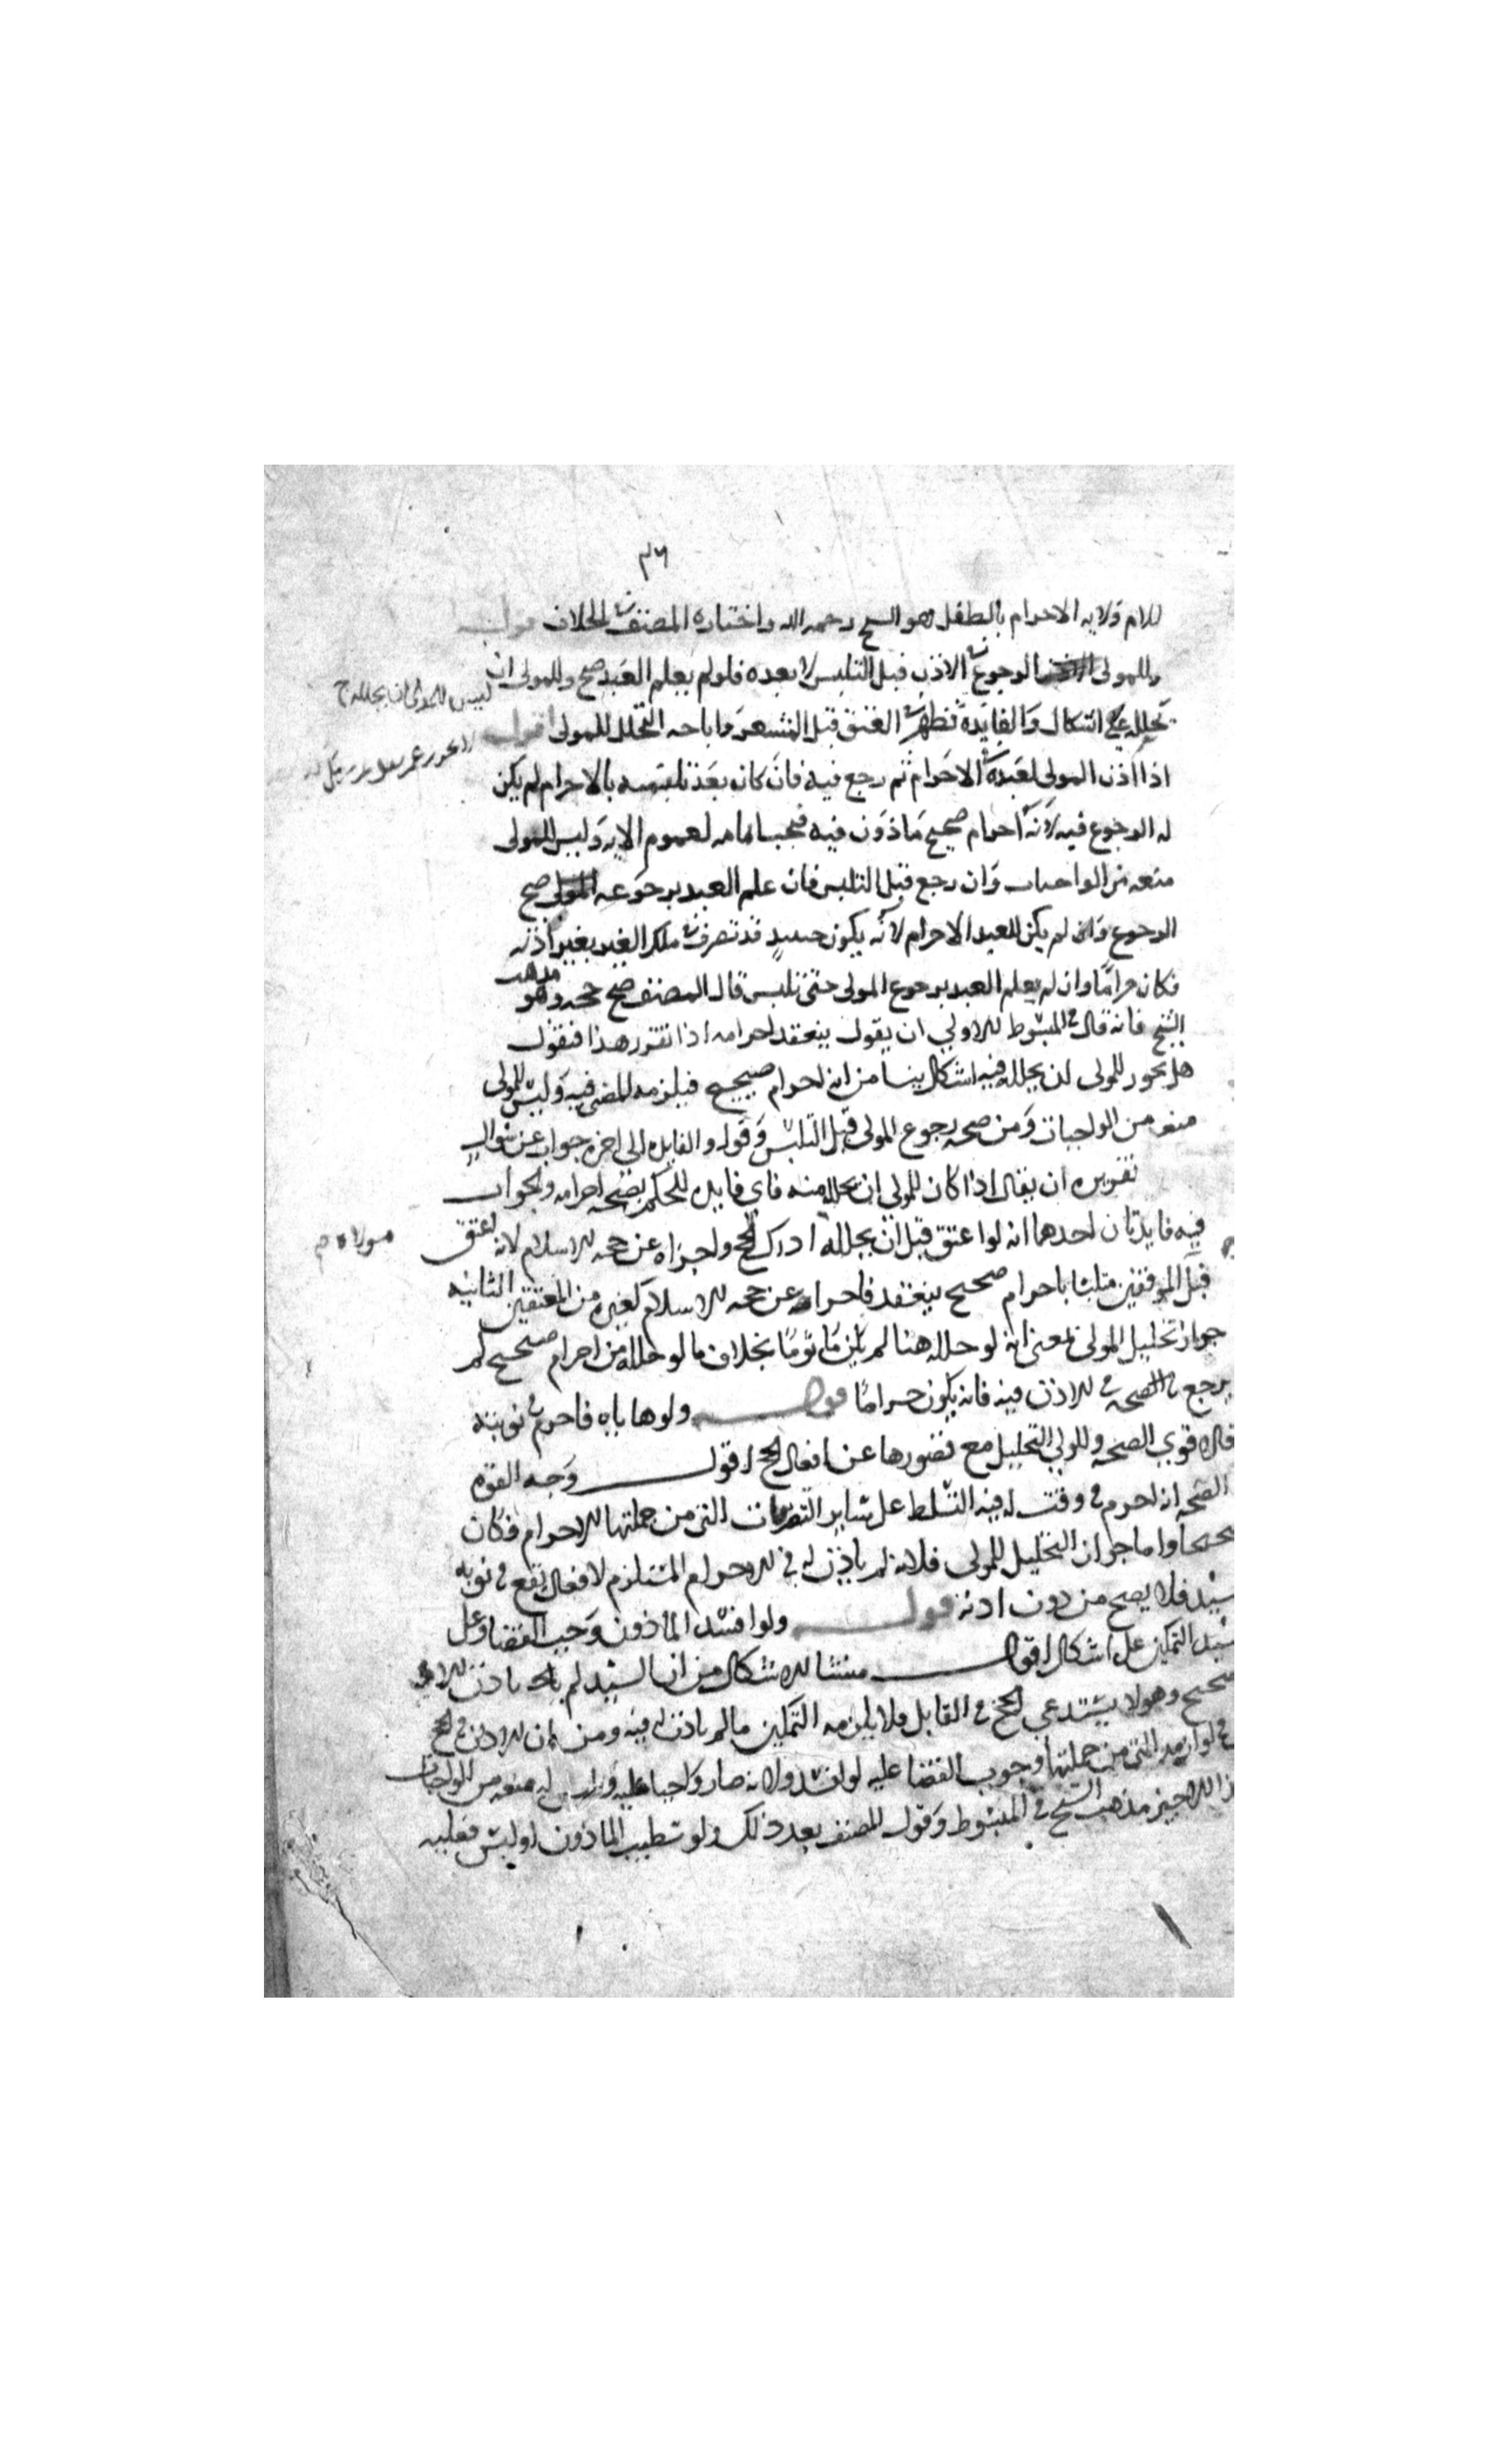 ٣٦
للام ولايه الاحرام بالطفل وهو الشيخ رحمه الله واختاره المصنف في الخلاف قوله
وللمولى الرجوع في الاذن قبل التلبس لا بعده فلو لم يعلم العبد صح وللمولى ان
ليس للمولى ان يحلله
تحلله على اشكال والفايده تظهر في العتق قبل المشعر واباحه التحلل للمولى اقول
اذا اذن المولى لعبده في الاحرام ثم رجع فيه فان كان بعد تلبسه بالاحرام لم يكن
له الرجوع فيه لانه احرام صحيح ماذون فيه فيجب اتمامه لعموم الايه وليس للمولى
منعه من الواجبات وان رجع قبل التلبس فان علم العبد برجوعه المولى صح
الرجوع وان لم يكن للعبد الاحرام لانه يكون حينئذ قد تصرف في ملك الغير بغير اذنه
فكان حراما وان لم يعلم العبد برجوع المولى حتى تلبس قال المصنف صح حجه وهو مذهب
الشيخ فانه قال في المبسوط الاولى ان يقول ينعقد احرامه اذا تقرر هذا فنقول
هل يجوز للمولى ان يحلله فيه اشكال ينشا من انه احرام صحيح فيلزمه المضي فيه وليس للمولى
منعه من الواجبات ومن صحه رجوع المولى قبل التلبس وقوله والفايده الى اخره جواب عن سوال
تقريره ان يقال اذا كان للمولى ان يحلله منه فاي فايده للحكم بصحه احرامه والجواب
فيه فايدتان احدهما انه لو اعتق قبل ان يحلله ادرك الحج واجزاه عن حجه الاسلام لانه اعتق
قبل الموقفين متلبسا باحرام صحيح ينعقد فاجزاه عن حجه الاسلام كغيره من المعتقين الثانيه
جواز تحليل المولى بمعنى انه لو حلله هنا لم يكن ماثوما بخلاف ما لو حلله من احرام صحيح لم
يرجع في الصحه في الاذن فيه فانه يكون حراما قوله ولو هاياه فاحرم في نوبته
فالاقوى الصحه وللمولى التحليل مع قصورها عن افعال الحج اقول وجه القوه
الصحه انه احرم في وقت له فيه التسلط على ساير التصرفات التي من جملتها الاحرام فكان
صحيحا واما جواز التحليل للمولى فلانه لم ياذن له في الاحرام المستلزم لافعال تقع في نوبه
سيده فلا يصح من دون اذنه قوله ولو افسد الماذون وجب القضا وعلى
سيد التمكين على اشكال اقول منشا الاشكال من ان السيد لم ياذن الا في
صحيح وهو لا يستدعي الحج في القابل فلا يلزمه التمكين ما لم ياذن له فيه ومن ان الاذن في الحج
في لوازمه التي من جملتها وجوب القضا عليه لو افسد ولانه صار واجبا عليه وليس له منعه من الواجبات
ذا الاخير مذهب الشيخ في المبسوط وقول المصنف بعد ذلك ولو تطيب الماذون او لبس فعليه